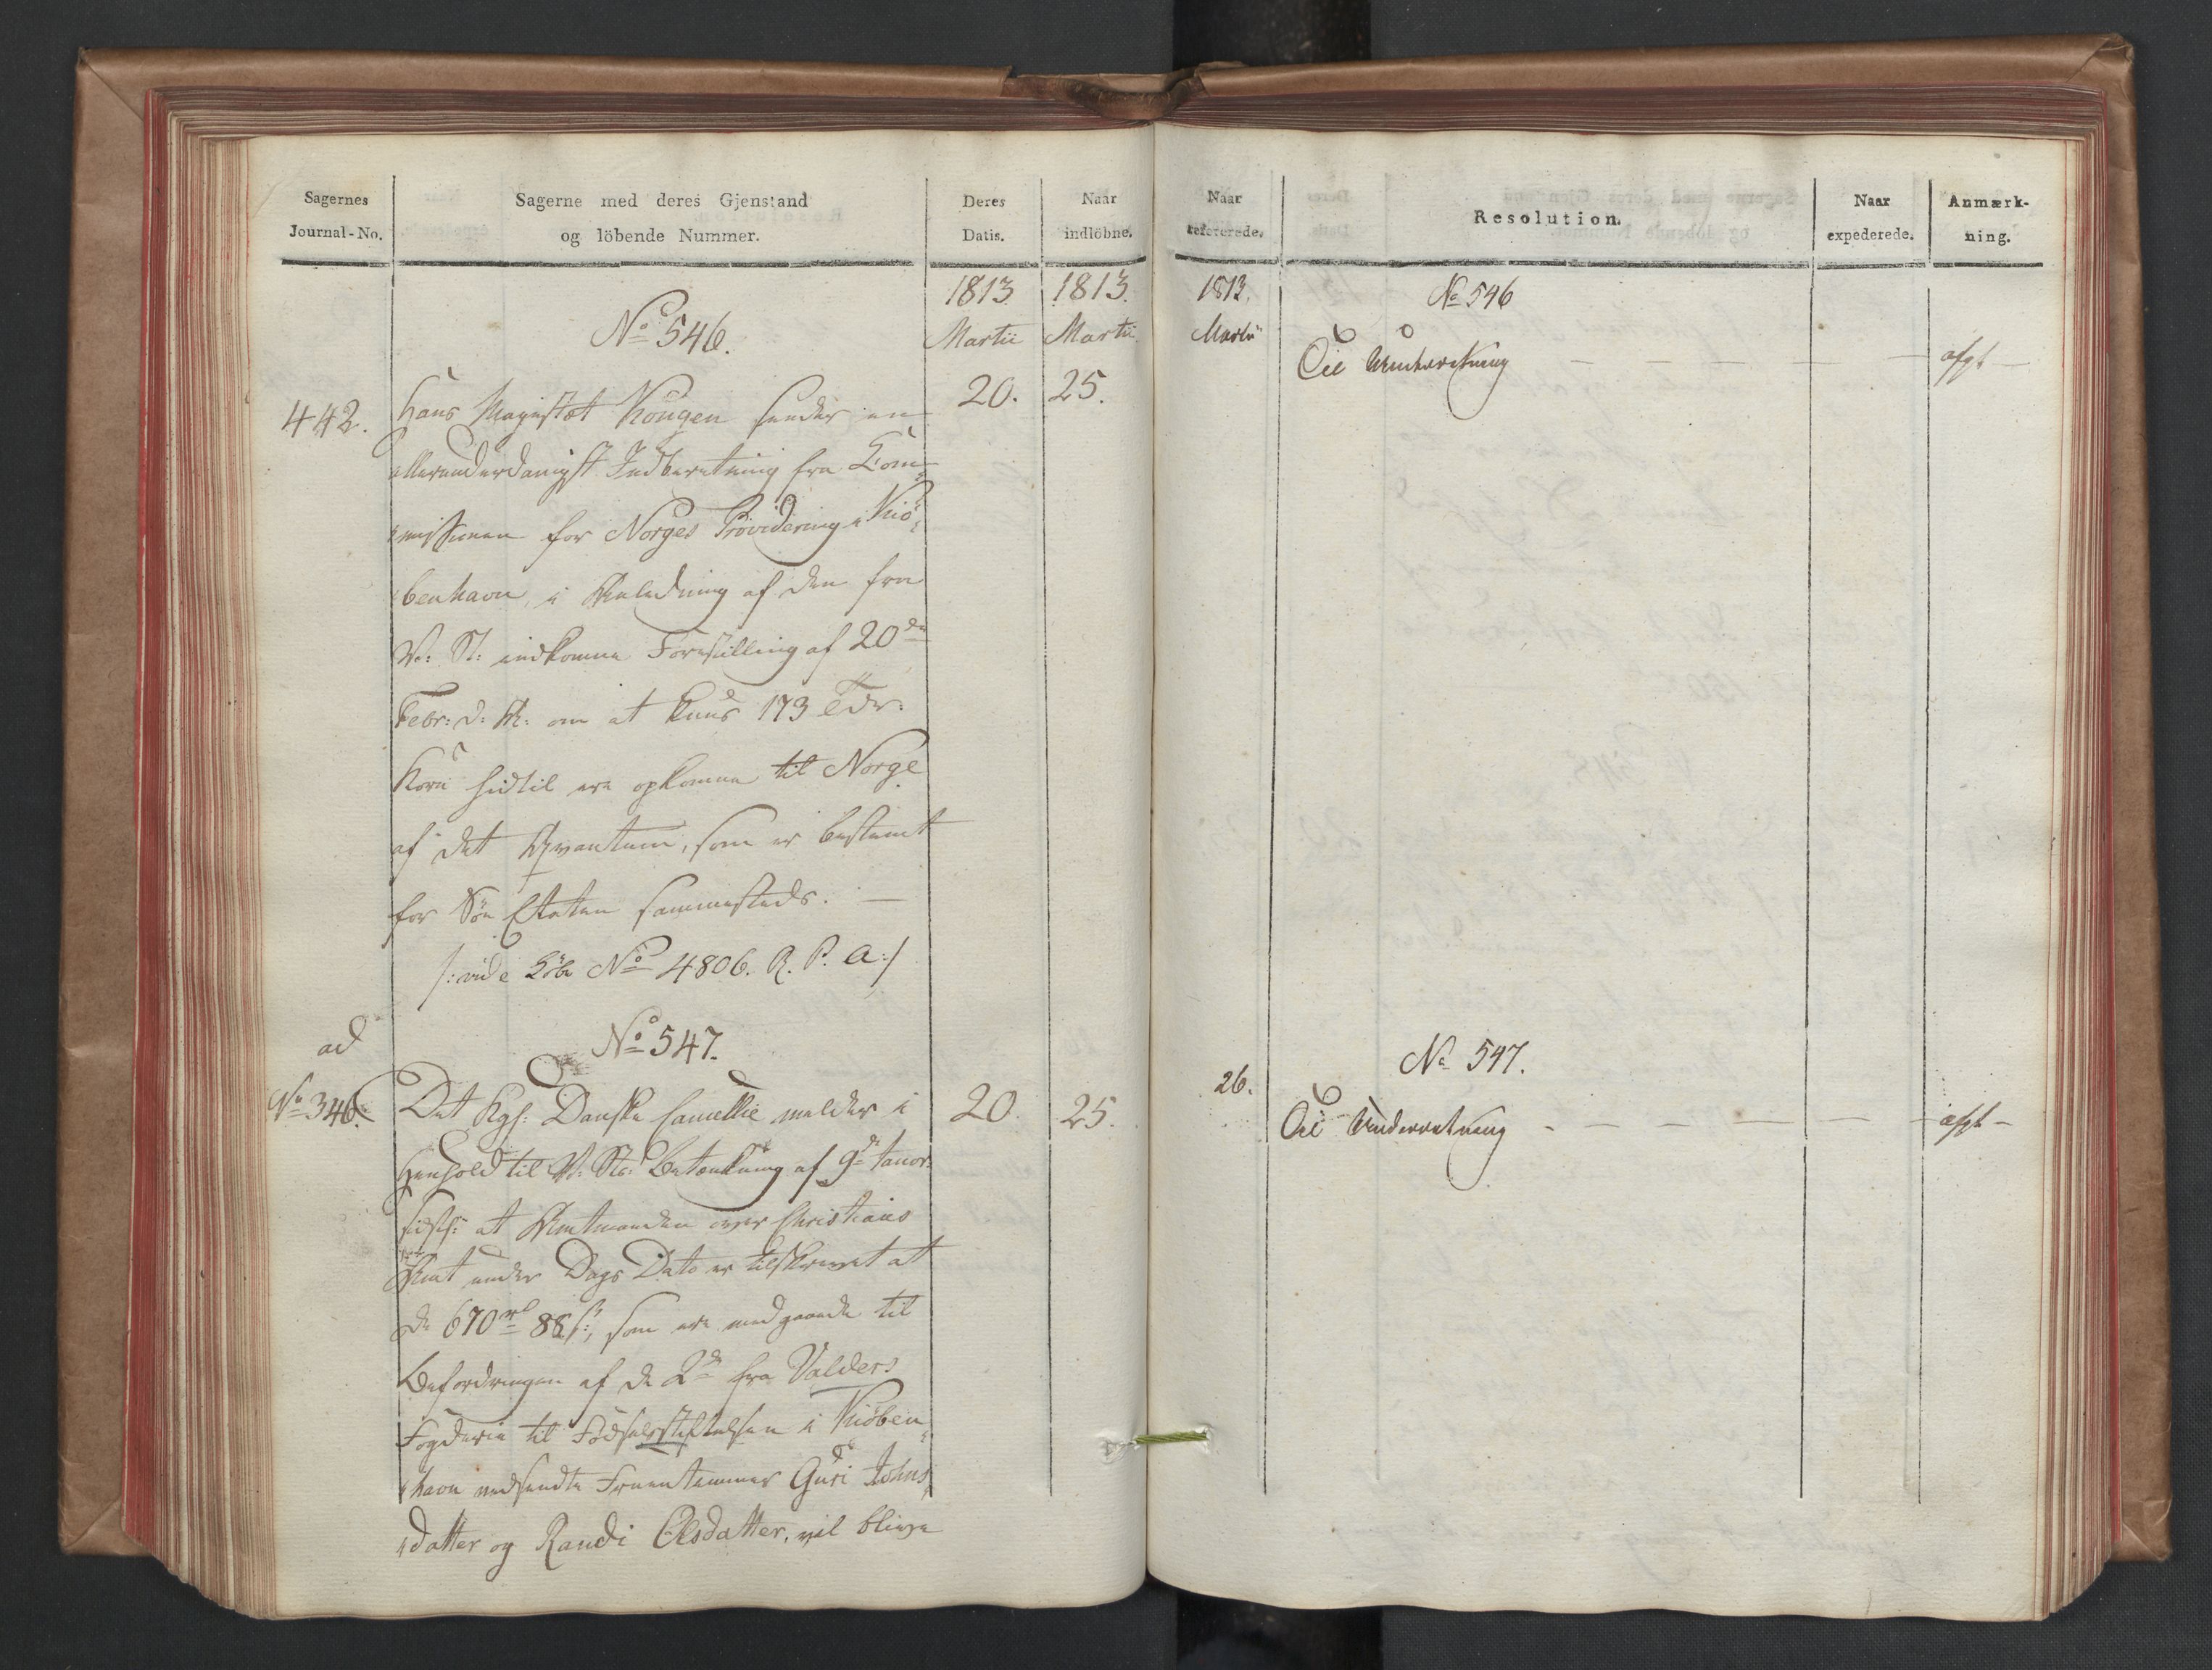 Sagernes
Journal-No.
Sagerne med deres Gjenstand
og löbende Nummer.
Deres
Datis.
Naar
indlöbne.
1813
Martii
1813.
Martii
No 546.
442.
20.
25.
Hans Majestæt Kongen sender en
allerunderdanigst Indberetning fra Com-
missionen for Norges Providering i Kiö-
benhavn, i Anledning af den fra
V: St: indkomne Forestilling af 20de
Febr: d: A: om at kuns 173 Tdr:
Korn hidtil ere opkomne til Norge
af det Qvantum, som er bestemt
for Söe Etaten sammesteds. —
/: vide Löbe No 4806. R. P. A :/
ad
No 346.
No 547.
20.
25.
Det Kgl: Danske Cancellie melder i
Henhold til V: Sts: Betænkning af 9de Janvr:
sidstl: at Amtmanden over Christians
Amt under Dags Dato er tilskrevet at
de 670 rd 88 s:, som ere medgaaede til
Befordringen af de 2de fra Valders
Fogderie til Födselsstiftelsen i Kiöben-
havn nedsendte Fruentimmer Guri Johns-
datter og Randi Olsdatter, vil blive
Naar
refererede.
Resolution.
Naar
expederede.
Anmærk-
ning.
1813.
Martii
No 546
Til Underretning — — — — — afgt —
26.
No 547.
Til Underretning - — — — — — afgt —